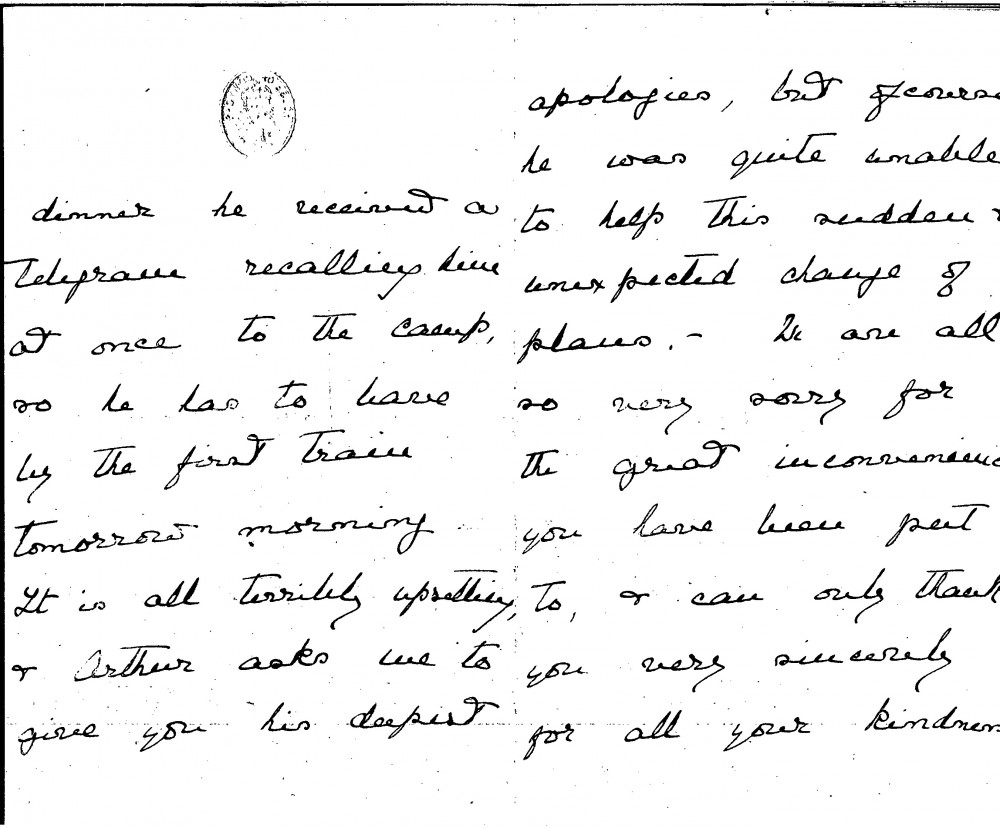 dinner he received a
telegram recalling him
at once to the camp,
so he has to leave
by the first train
tomorrow morning
It is all terribly upsetting,
& Arthur asks me to
give you his deepest
apologies, but of course
he was quite unable
to help this sudden &
unexpected change of
plans. - We are all
so very sorry for
the great inconvenienc
you have been put
to, & can only thank
you very sincerely
for all your kindness